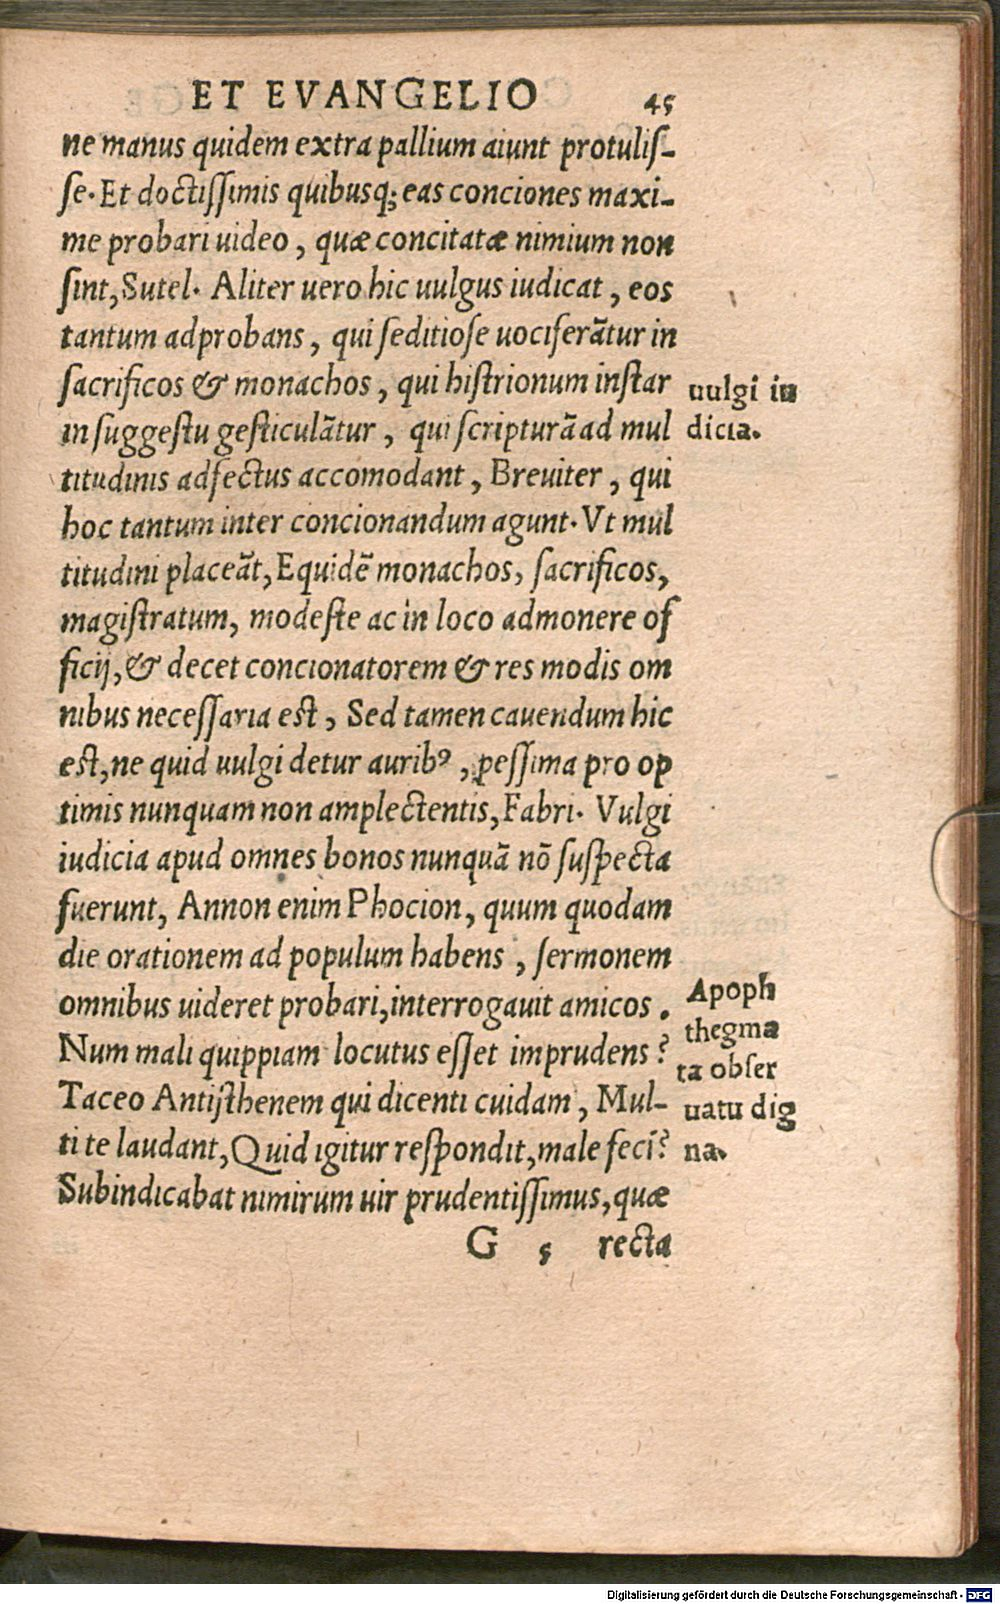 ET EVANGELIO 45
ne manus quidem extra pallium aiunt protulis-
se. Et doctissimis quibusq; eas conciones maxi-
me probari uideo, quæ concitatæ nimium non
sint, Sutel. Aliter uero hic uulgus iudicat, eos
tantum adprobans, qui seditiose uociferãtur in
sacrificos & monachos, qui histrionum instar
in suggestu gesticulãtur, qui scripturã ad mul
titudinis adfectus accomodant, Breuiter, qui
hoc tantum inter concionandum agunt. Vt mul
titudini placeãt, Equidẽ monachos, sacrificos,
magistratum, modeste ac in loco admonere of
ficij, & decet concionatorem & res modis om
nibus necessaria est, Sed tamen cauendum hic
est, ne quid uulgi detur auribꝰ, pessima pro op
timis nunquam non amplectentis, Fabri. Vulgi
iudicia apud omnes bonos nunquã nõ suspecta
fuerunt, Annon enim Phocion, quum quodam
die orationem ad populum habens, sermonem
omnibus uideret probari, interrogauit amicos.
Num mali quippiam locutus esset imprudens?
Taceo Antisthenem qui dicenti cuidam, Mul-
ti te laudant, Quid igitur respondit, male feci?
Subindicabat nimirum uir prudentissimus, quæ
G 5 recta
uulgi iu
dicia.
Apoph
thegma
ta obser
uatu dig
na.
Digitalisierung gefördert durch die Deutsche Forschungsgemeinschaft - DFG